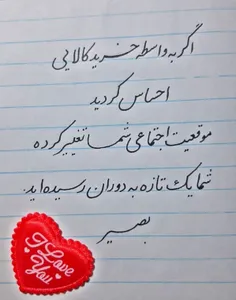 اگر به واسطه خرید کالایی
احساس کردید
موقعیت اجتماعی شما تغییر کرده
شما یک تازه به دوران رسیده اید.
بصیر
I Love
You